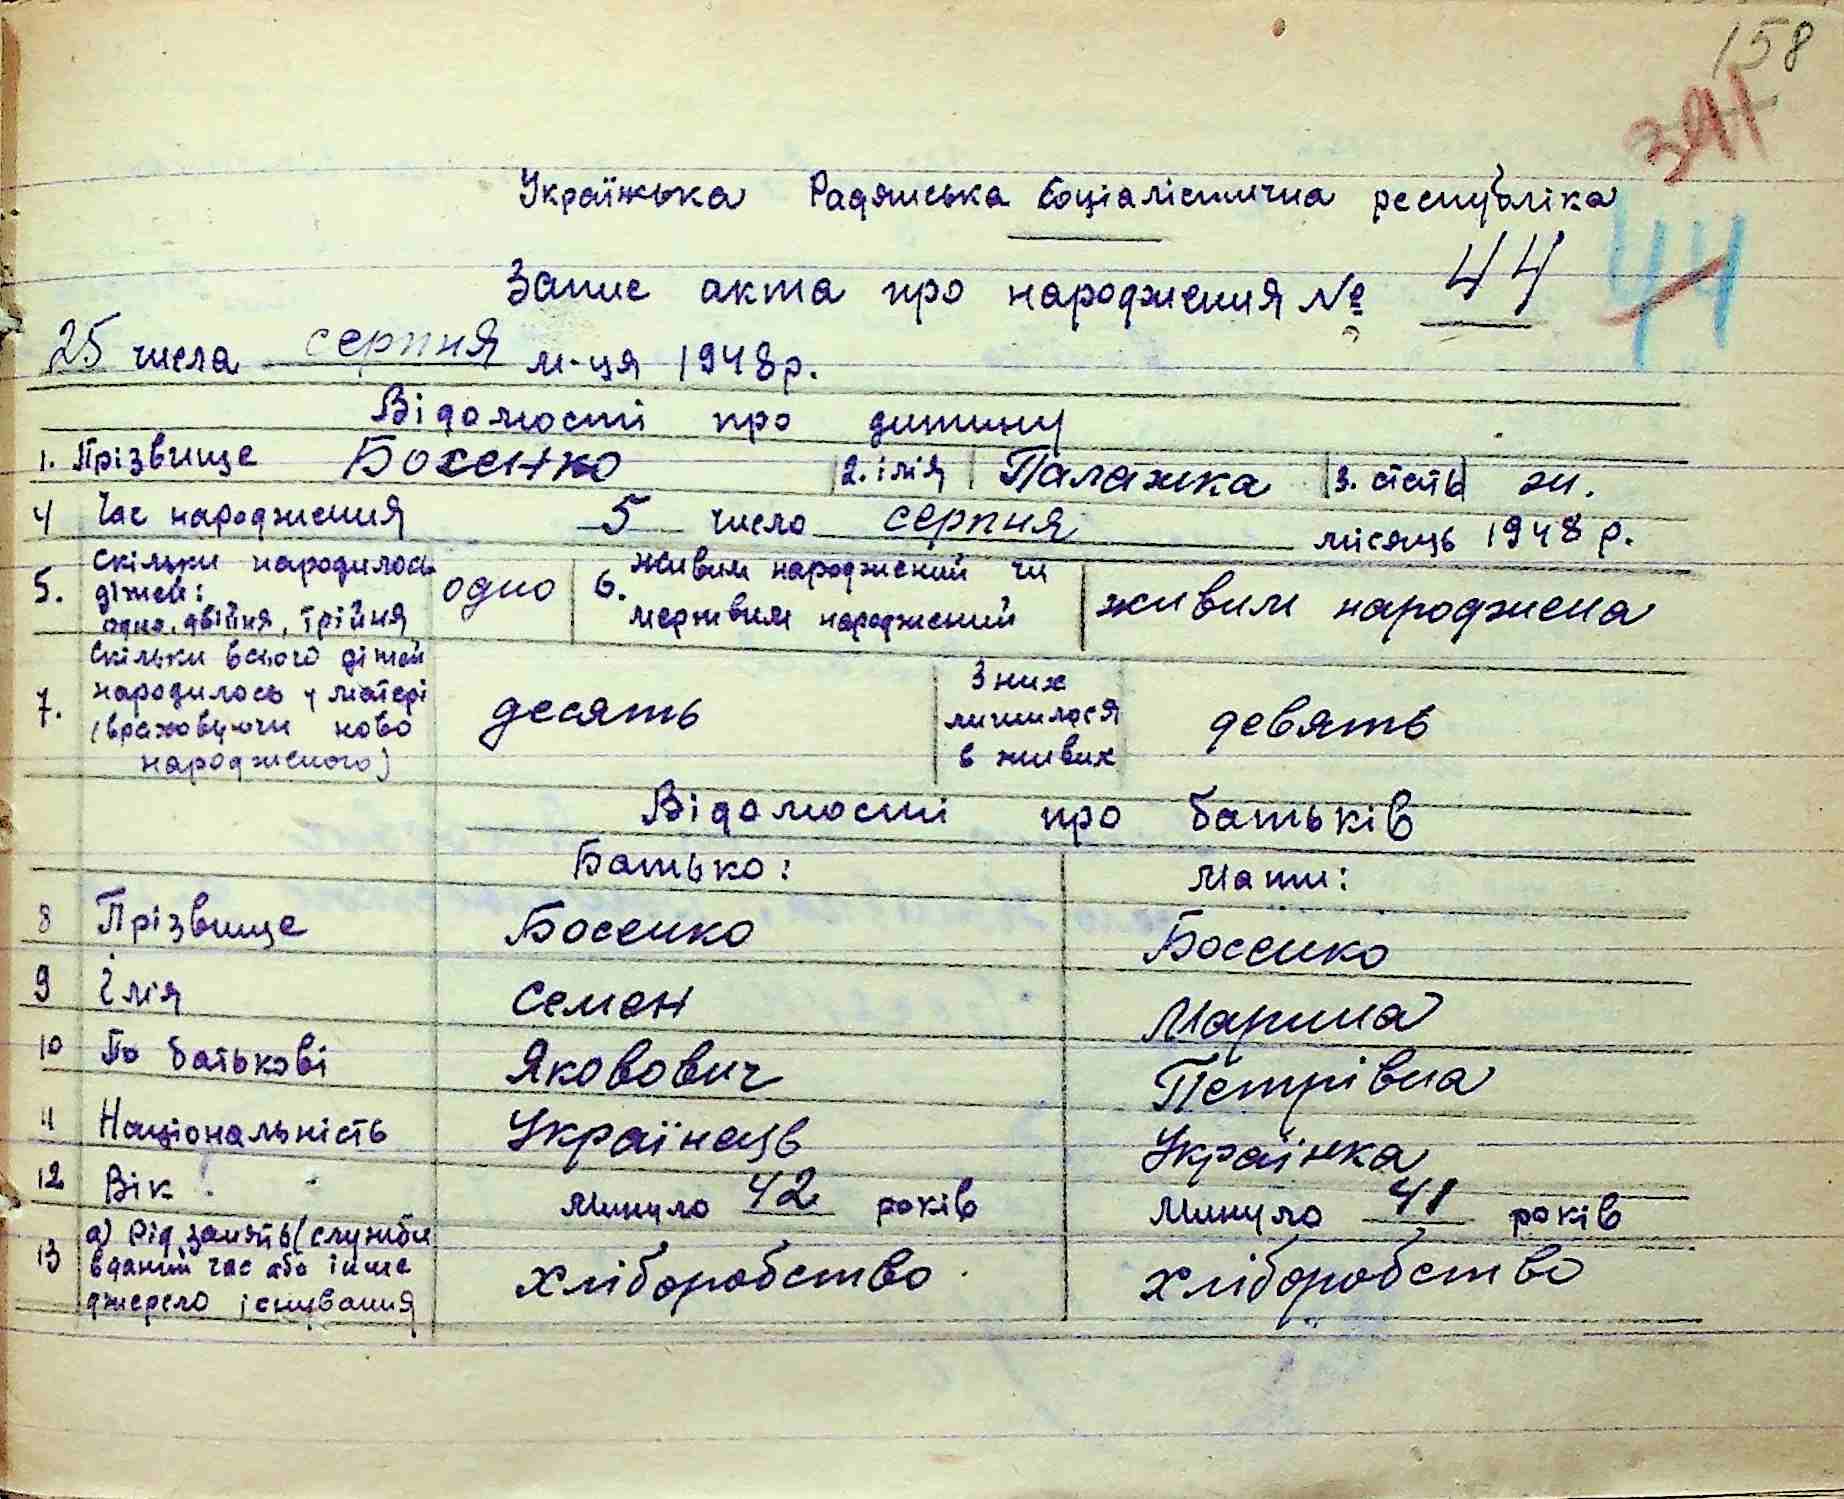 158
391
Українська Радянська Соціалістична республіка
Запис акта про народження № 44 44
25 числа серпня м-ця 1948 р.
Відомості про дитину
1. Прізвище Босенко 2. ім'я Палажка 3. стать ж.
4 Час народження 5 число серпня місяць 1948 р.
5. Скільки народилось дітей: одно, двійня, трійня одно 6. живим народжений чи мертвим народжений живим народжена
7. Скільки всього дітей народилось у матері (враховуючи ново народженого) десять З них лишилося в живих девять
Відомості про батьків
Батько: Мати:
8 Прізвище Босенко Босенко
9 Імя Семен Марина
10 По батькові Яковович Петрівна
11 Національність Українець Українка
12 Вік Минуло 42 років Минуло 41 років
13 а) Рід занять (служби в даний час або інше джерело існування хліборобство хліборобство